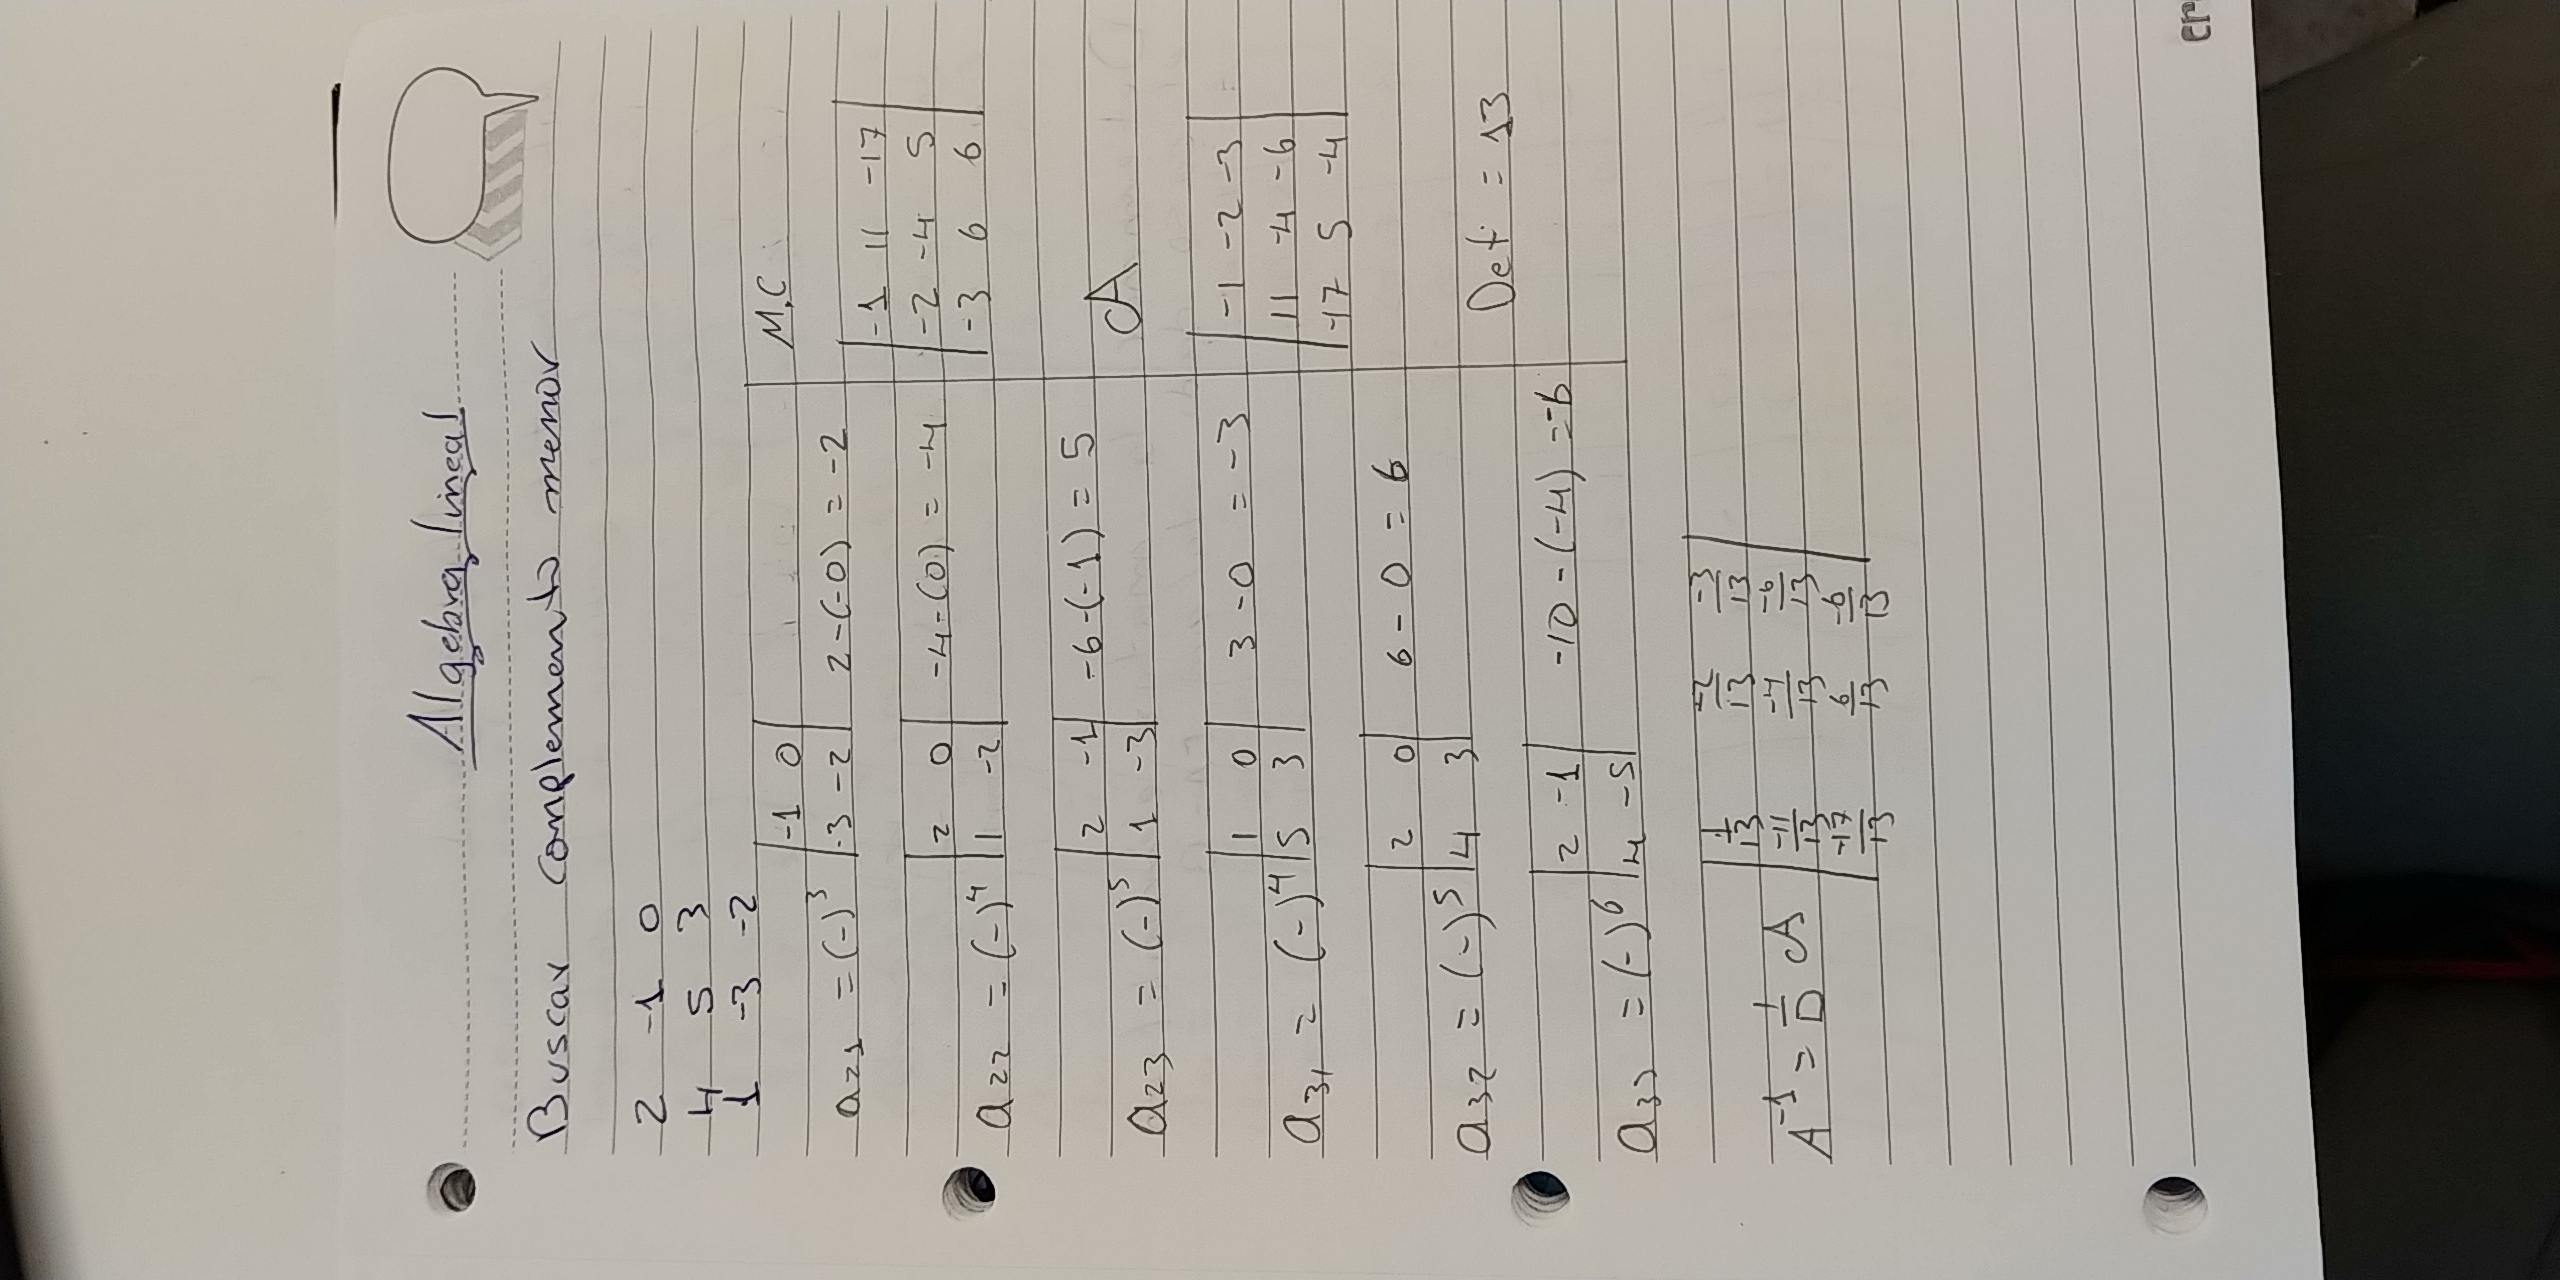 Algebra lineal
Buscar complemento menor
2 -1 0
4 5 3
1 -3 -2
a21 = (-)^3 |-1 0| 2-(-0) = -2
|-3 -2|
a22 = (-)^4 |2 0| -4-(0) = -4
|1 -2|
a23 = (-)^5 |2 -1| -6-(-1) = 5
|1 -3|
a31 = (-)^4 |1 0| 3-0 = -3
|5 3|
a32 = (-)^5 |2 0| 6-0 = 6
|4 3|
a33 = (-)^6 |2 -1| -10-(-4) = -6
|4 -5|
M.C
|-1 11 -17|
|-2 -4 5|
|-3 6 6|
A
|-1 -2 -3|
|11 -4 -6|
|-17 5 -4|
Det = 13
A^-1 = 1/D A |1/13 -2/13 -3/13|
|-11/13 -4/13 -6/13|
|-17/13 6/13 -6/13|